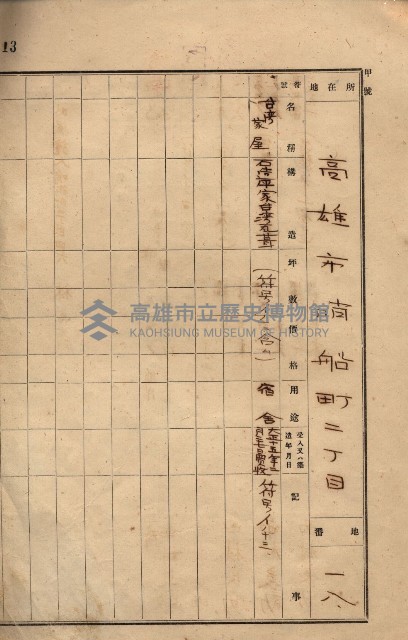 13
甲號
所在地
高雄市哨船町二丁目
地番
一八
番號
名稱
構造
坪數
價格
用途
受入又ハ建造年月日
記事
台湾家屋
石造平家台湾瓦葺
(符号イ合ム)
宿舍
大正十五年三月
買收
符号イノ十三
高雄市立歷史博物館
KAOHSIUNG MUSEUM OF HISTORY